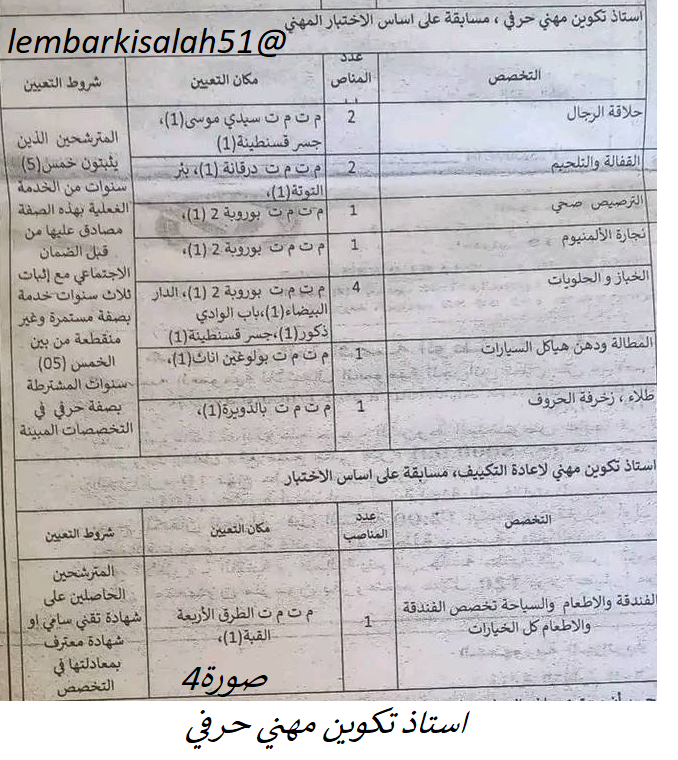 استاذ تكوين مهني حرفي ، مسابقة على اساس الاختبار المهني
lembarkisalah51@
التخصص
عدد
المناص
مكان التعيين
شروط التعيين
حلاقة الرجال
2
م ت م ت سيدي موسى(1)،
جسر قسنطينة(1)
القفالة والتلحيم
2
م ت م ت درقانة (1)، بئر
التوتة(1)،
الترصيص صحي
1
م ت م ت بوروبة 2 (1)،
نجارة الألمنيوم
1
م ت م ت بوروبة 2 (1)،
الخباز و الحلويات
4
م ت م ت بوروبة 2 (1)، الدار
البيضاء(1)،باب الوادي
ذكور(1)،جسر قسنطينة(1)
المطالة ودهن هياكل السيارات
1
م ت م ت بولوغين اناث(1)،
طلاء ، زخرفة الحروف
1
م ت م ت بالدويرة(1)،
المترشحين الذين
يثبتون خمس(5)
سنوات من الخدمة
الفعلية بهذه الصفة
مصادق عليها من
قبل الضمان
الاجتماعي مع إثبات
ثلاث سنوات خدمة
بصفة مستمرة وغير
منقطعة من بين
الخمس (05)
سنوات المشترطة
بصفة حرفي في
التخصصات المبينة
استاذ تكوين مهني لاعادة التكييف، مسابقة على اساس الاختبار
التخصص
عدد
المناصب
مكان التعيين
شروط التعيين
الفندقة والاطعام والسياحة تخصص الفندقة
والاطعام كل الخيارات
1
م ت م ت الطرق الأربعة
القبة(1)،
المترشحين
الحاصلين على
شهادة تقني سامي او
شهادة معترف
بمعادلتها في
التخصص
صورة4
استاذ تكوين مهني حرفي